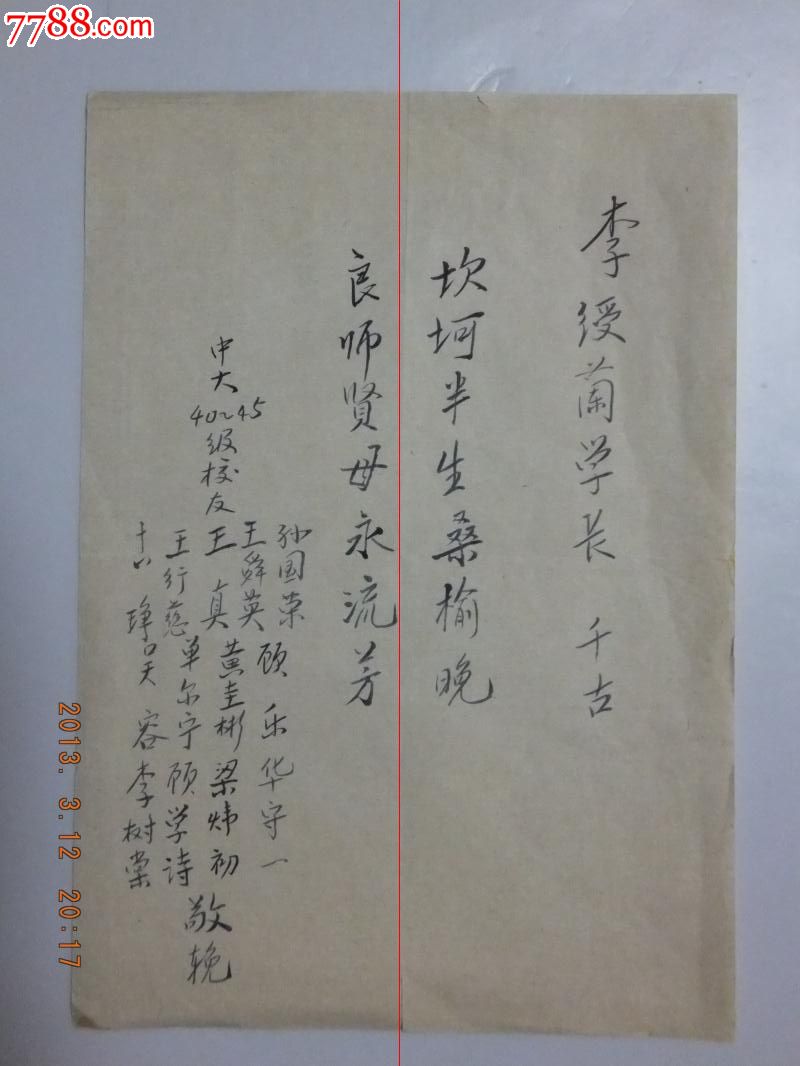 7788.com
李绶兰学长 千古
坎坷半生桑榆晚
良师贤母永流芳
中大
40~45
级校友
孙国荣 顾乐 华守一
王舜英 黄圭彬 梁炜初
王真 单尔宁 顾学诗
王行慈 容 李树棠
敬挽
2013. 3.12 20:17